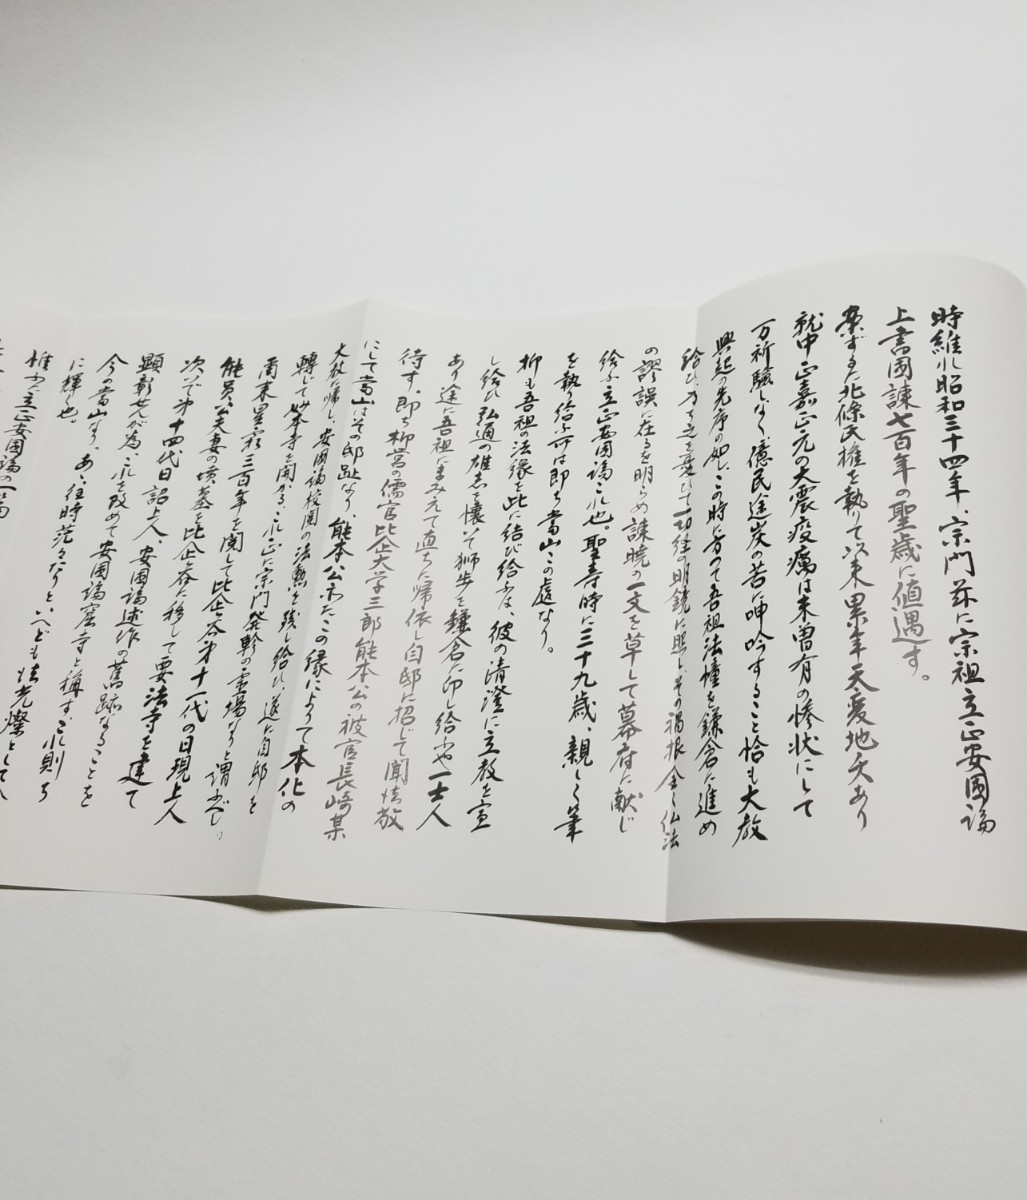 時維れ昭和三十四年、宗門茲に宗祖立正安国論
上書国諌七百年の聖歳に値遇す。
案ずるに北條氏権を執りて以来累年天変地夭あり
就中正嘉正元の大震疫癘は未曽有の惨状にして
万祈験しなく億民途炭の苦に呻吟すること恰も大教
興起の先序の如し、この時に方つて吾祖法幢を鎌倉に進め
給ひ、乃ち之を憂して一切経の明鏡に照しその禍根全く仏法
の謬誤に在るを明らめ諌暁の一文を草して幕府に献じ
給ふ立正安国論これ也。聖寿時に三十九歳、親しく筆
を執り給ふ所は即ち当山この處なり。
抑も吾祖の法縁を此に結び給ふは、彼の清澄に立教を宣
し給ひ弘通の雄志を懐いて獅歩を鎌倉に印し給ふや一士人
あり途に吾祖にまみえて直ちに帰依し自邸に招じて聞法敬
待す、即ち柳営の儒官比企大学三郎能本公の被官長崎某
にして当山はその邸趾なり、能本公亦たこの縁によりて本化の
大教に帰し、安国論校閲の法勲を残し給ひ、遂に自邸を
転じて妙本寺を開かる、これ正に宗門発軫の霊場なりと謂ふべし。
爾来星霜三百年を関して比企谷第十一代の日現上人
能員公夫妻の墳墓を比企谷に移して要法寺を建て
次いで第十四代日詔上人、安国論述作の舊跡なることを
顕彰せんが為これを改めて安国論窟寺と稱す、これ則ち
今の当山なり、あゝ往時茫々たりといへども法光燦として
に輝く也。
惟ふに立正安国論の一篇